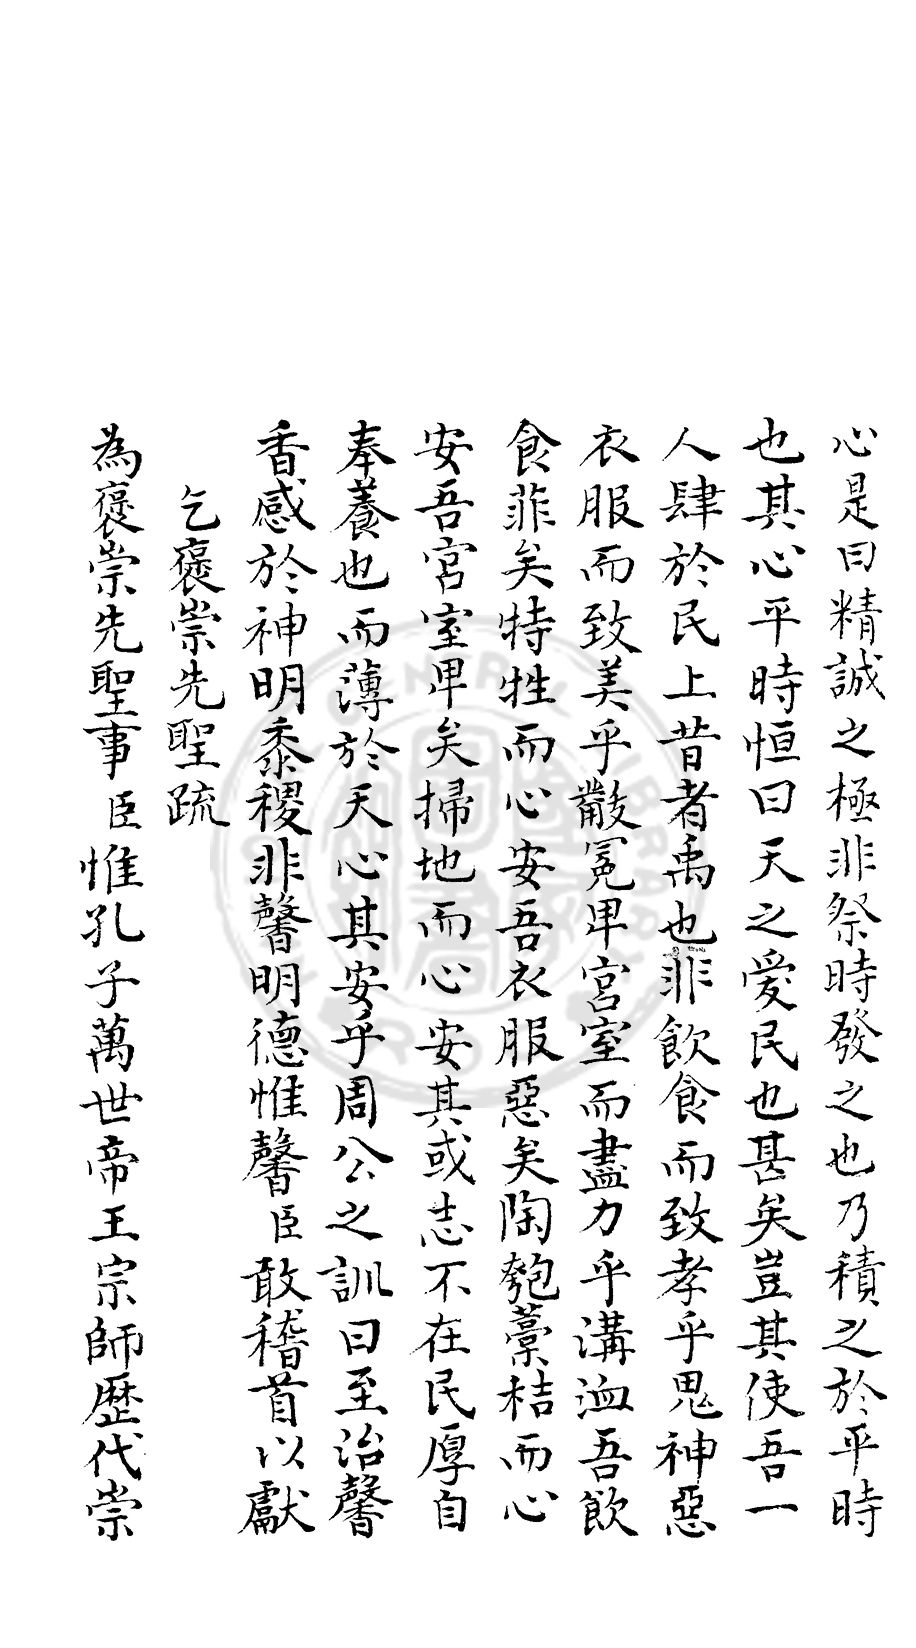 心是曰精誠之極非祭時發之也乃積之於平時
也其心平時恒曰天之愛民也甚矣豈其使吾一
人肆於民上昔者禹也非飲食而致孝乎鬼神惡
衣服而致美乎黻冕卑宮室而盡力乎溝洫吾飲
食菲矣特牲而心安吾衣服惡矣陶匏藁秸而心
安吾宮室卑矣掃地而心安其或志不在民厚自
奉養也而薄於天心其安乎周公之訓曰至治馨
香感於神明黍稷非馨明德惟馨臣敢稽首以獻
乞褒崇先聖疏
為褒崇先聖事臣惟孔子萬世帝王宗師歷代崇